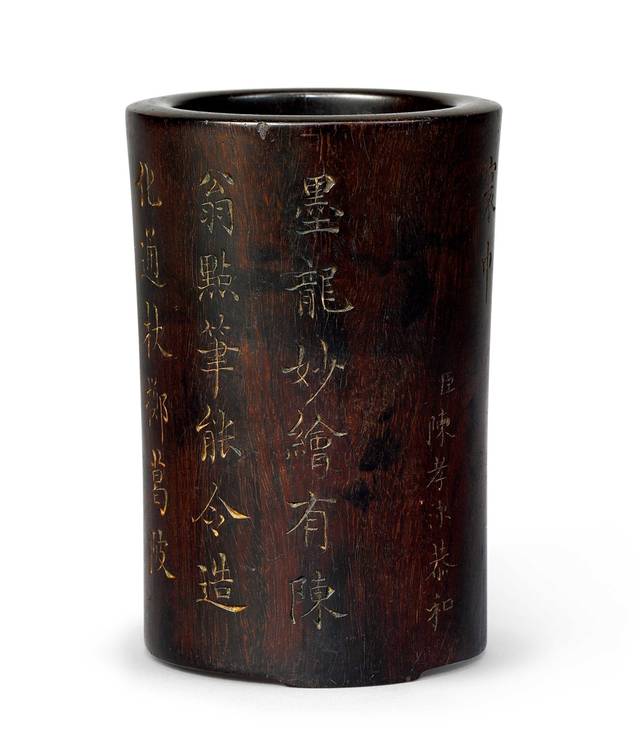 臣陳孝泳恭和
墨龍妙繪有陳
翁點筆能令造
化通杖擲葛陂